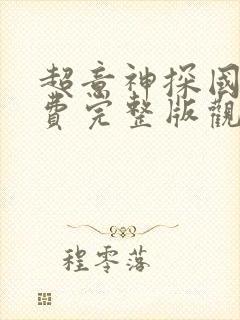 超意神探國
費完整版觀
程零落